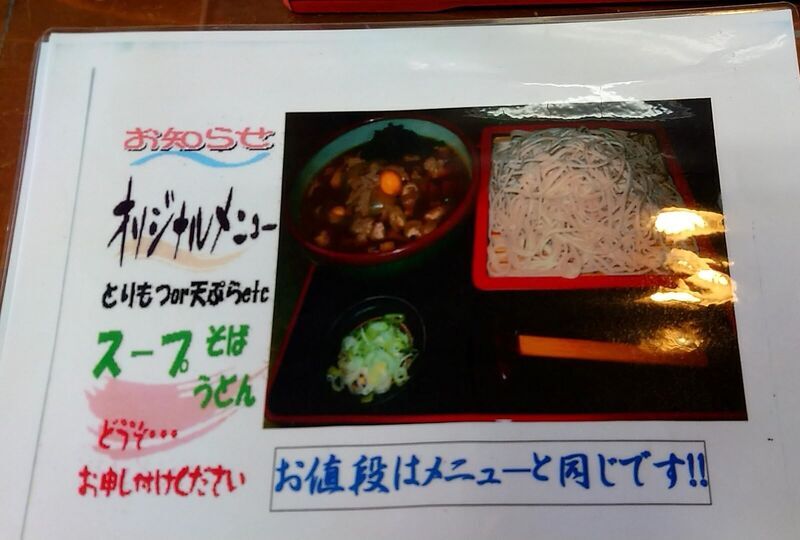 お知らせ
オリジナルメニュー
とりもつor天ぷらetc
スープ そば
うどん
どうぞ…
お申し付けください
お値段はメニューと同じです!!